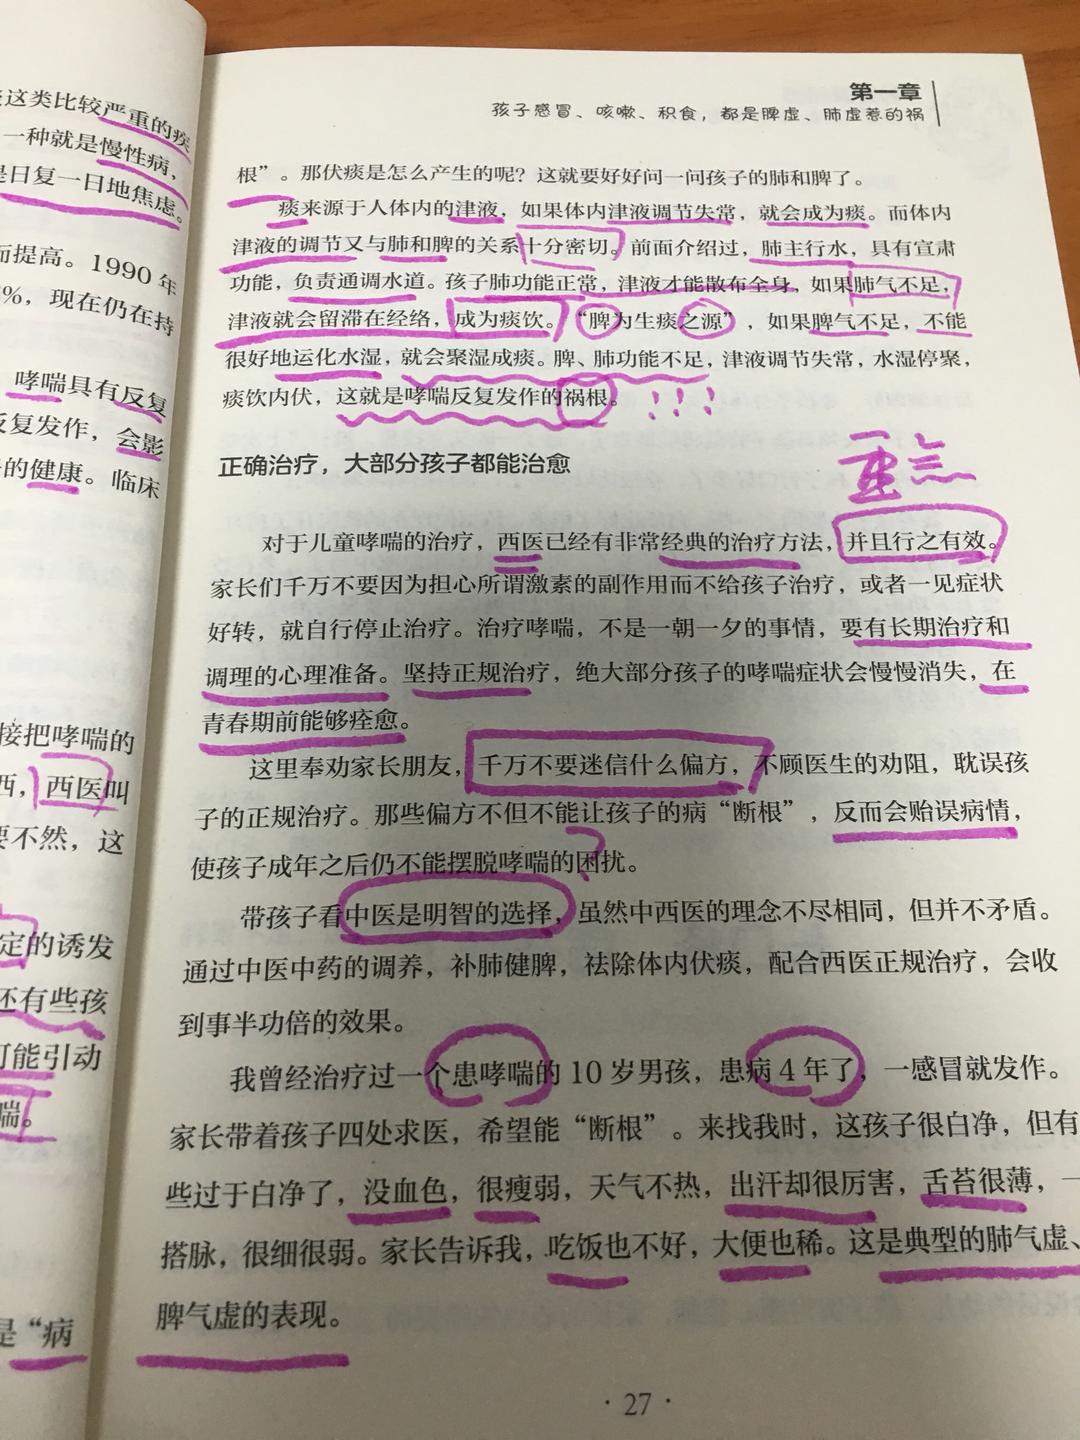 这类比较严重的疾
一种就是慢性病，
是日复一日地焦虑。
而提高。1990 年
%，现在仍在持
哮喘具有反复
反复发作，会影
的健康。临床
接把哮喘的
西，西医叫
要不然，这
定的诱发
还有些孩
可能引动
喘。
是“病
第一章
孩子感冒、咳嗽、积食，都是脾虚、肺虚惹的祸
根”。那伏痰是怎么产生的呢？这就要好好问一问孩子的肺和脾了。
痰来源于人体内的津液，如果体内津液调节失常，就会成为痰。而体内
津液的调节又与肺和脾的关系十分密切。前面介绍过，肺主行水，具有宣肃
功能，负责通调水道。孩子肺功能正常，津液才能散布全身，如果肺气不足，
津液就会留滞在经络，成为痰饮。“脾为生痰之源”，如果脾气不足，不能
很好地运化水湿，就会聚湿成痰。脾、肺功能不足，津液调节失常，水湿停聚，
痰饮内伏，这就是哮喘反复发作的祸根。！！！
正确治疗，大部分孩子都能治愈
重点
对于儿童哮喘的治疗，西医已经有非常经典的治疗方法，并且行之有效。
家长们千万不要因为担心所谓激素的副作用而不给孩子治疗，或者一见症状
好转，就自行停止治疗。治疗哮喘，不是一朝一夕的事情，要有长期治疗和
调理的心理准备。坚持正规治疗，绝大部分孩子的哮喘症状会慢慢消失，在
青春期前能够痊愈。
这里奉劝家长朋友，千万不要迷信什么偏方，不顾医生的劝阻，耽误孩
子的正规治疗。那些偏方不但不能让孩子的病“断根”，反而会贻误病情，
使孩子成年之后仍不能摆脱哮喘的困扰。
带孩子看中医是明智的选择，虽然中西医的理念不尽相同，但并不矛盾。
通过中医中药的调养，补肺健脾，祛除体内伏痰，配合西医正规治疗，会收
到事半功倍的效果。
我曾经治疗过一个患哮喘的 10 岁男孩，患病 4 年了，一感冒就发作。
家长带着孩子四处求医，希望能“断根”。来找我时，这孩子很白净，但有
些过于白净了，没血色，很瘦弱，天气不热，出汗却很厉害，舌苔很薄，一
搭脉，很细很弱。家长告诉我，吃饭也不好，大便也稀。这是典型的肺气虚、
脾气虚的表现。
· 27 ·